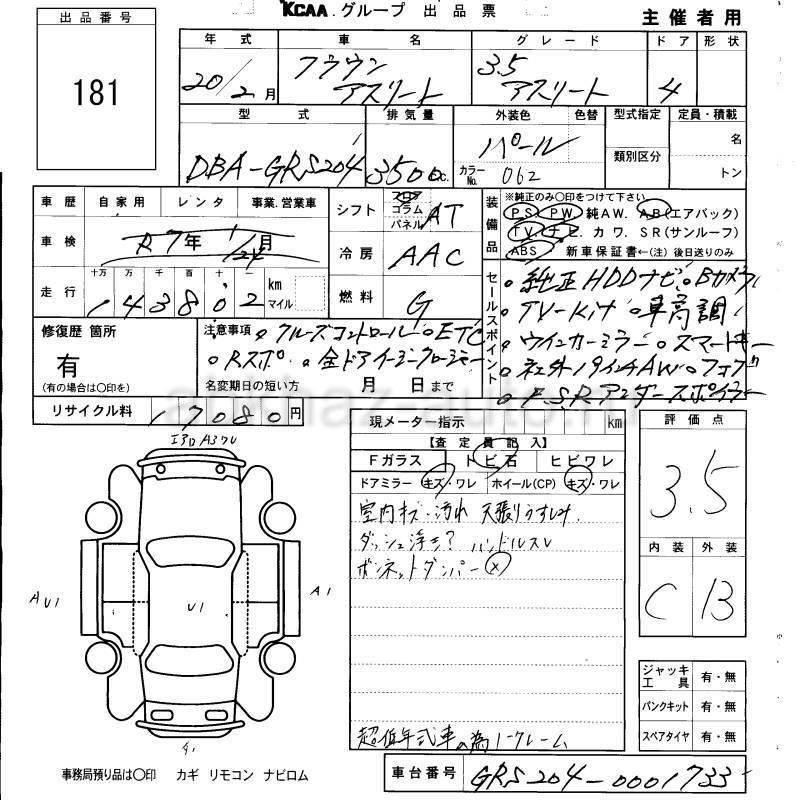 出品番号
181
KCAA.グループ 出品票
主催者用
年式 車名 グレード ドア 形状
20/2月 クラウン アスリート 3.5 アスリート 4
型式 排気量 外装色 色替 型式指定 定員・積載
DBA-GRS204 3500cc. パール
カラーNo. 062
類別区分
名
トン
車歴 自家用 レンタ 事業.営業車
車検 R7年 1/24月
走行 十万 万 千 百 十 一
143802 km マイル
シフト フロア コラム パネル AT
冷房 AAC
燃料 G
装備品
※純正のみ〇印をつけて下さい
PS PW 純AW. AB(エアバック)
TV ナビ. カワ. SR(サンルーフ)
ABS 新車保証書←(注)後日送りのみ
セールスポイント
・純正HDDナビ・Bカメラ
・TV-Kit ・車高調
・ウインカーミラー・スマートキー
・社外19インチAW・フォグ
・F.S.Rアンダースポイラー
修復歴 箇所
有
(有の場合は〇印を)
注意事項 ・クルーズコントロール・ETC
・Rスポ・全ドアイージークローザー
名変期日の短い方 月 日まで
リサイクル料 17080円
現メーター指示 km
【査定員記入】
Fガラス トビ石 ヒビワレ
ドアミラー キズ・ワレ ホイール(CP) キズ・ワレ
室内キズ・汚れ 天張りうすしみ.
ダッシュ浮き? ハンドルスレ
ボンネットダンパー×
超低年式車の為ノークレーム
評価点
3.5
内装 外装
C B
ジャッキ工具 有・無
パンクキット 有・無
スペアタイヤ 有・無
AU1
U1
A1
事務局預り品は〇印 カギ リモコン ナビロム
車台番号 GRS204-0001733
abkhaz-auto.ru